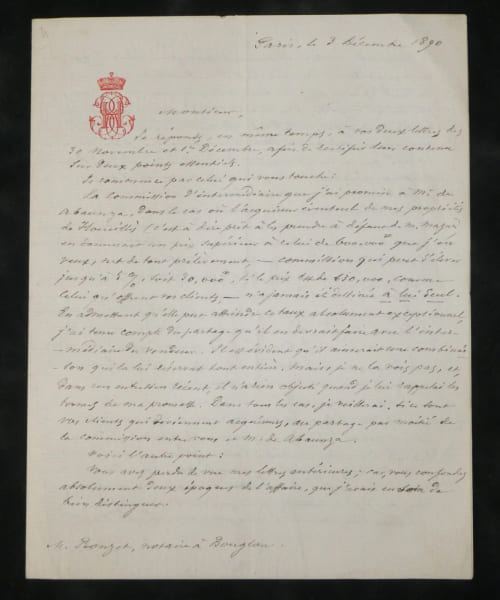 Paris, le 3 Décembre 1890
Monsieur,
Je réponds, en même temps, à vos deux lettres des
30 Novembre et 1er Décembre, afin de rectifier leur contenu
sur deux points essentiels.
Je commence par celui qui vous touche:
La commission d'intermédiaire que j'ai promise à Mr de
Abaunza, dans le cas où l'acquéreur éventuel de mes propriétés
de (c'est à dire prêt à les prendre à défaut de M.
en donnant un prix supérieur à celui de que j'en
veux, net de tout prélèvement, — commission qui peut s'élever
jusqu'à 5 %, soit 30,000, si le prix est de 630,000, comme
celui qu'offrent vos clients, — n'a jamais été destinée à lui seul.
En admettant qu'elle pût atteindre ce taux absolument exceptionnel,
j'ai tenu compte du partage qu'il en devrait faire avec l'inter-
-médiaire du vendeur. Il est évident qu'il aimerait une combinai-
-son qui la lui réservât tout entière, mais je ne la vois pas, et,
dans son entretien récent, il n'a rien objecté quand je lui rappelai les
termes de ma promesse. Dans tous les cas, je veillerai, si ce sont
vos clients qui deviennent acquéreurs, au partage par moitié de
la commission entre vous et M. de Abaunza.
Voici l'autre point:
Vous avez perdu de vue mes lettres antérieures; car, vous confondez
absolument deux époques de l'affaire, que j'avais eu soin de
bien distinguer.
M. Rouzet, notaire à Bouglon.